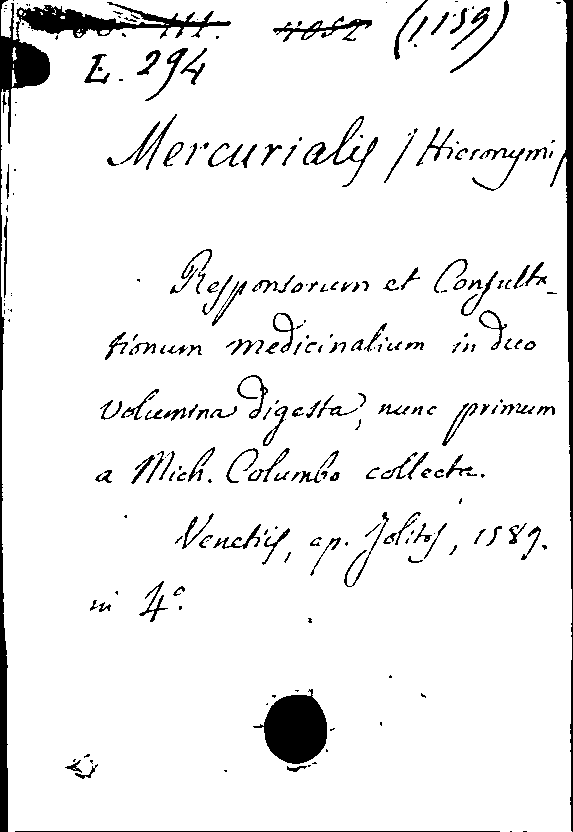 III. 4052 (1159)
L. 294
Mercurialis / Hieronymi /
Responsorum et Consulta-
tionum medicinalium in duo
volumina digesta, nunc primum
a Mich. Columbo collecta.
Venetiis, ap. Jolitos, 1589.
in 4°.